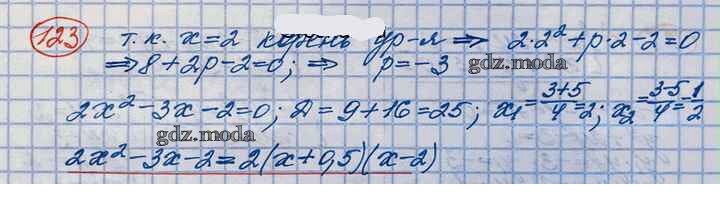 123 т.к. x=2 корень ур-я ⇒ 2·2²+p·2-2=0
⇒8+2p-2=0; ⇒ p=-3
gdz.moda
2x²-3x-2=0; Д=9+16=25; x₁=\frac{3+5}{4}=2; x₂=\frac{3-5}{4}=\frac{1}{2}
gdz.moda
2x²-3x-2=2(x+0,5)(x-2)